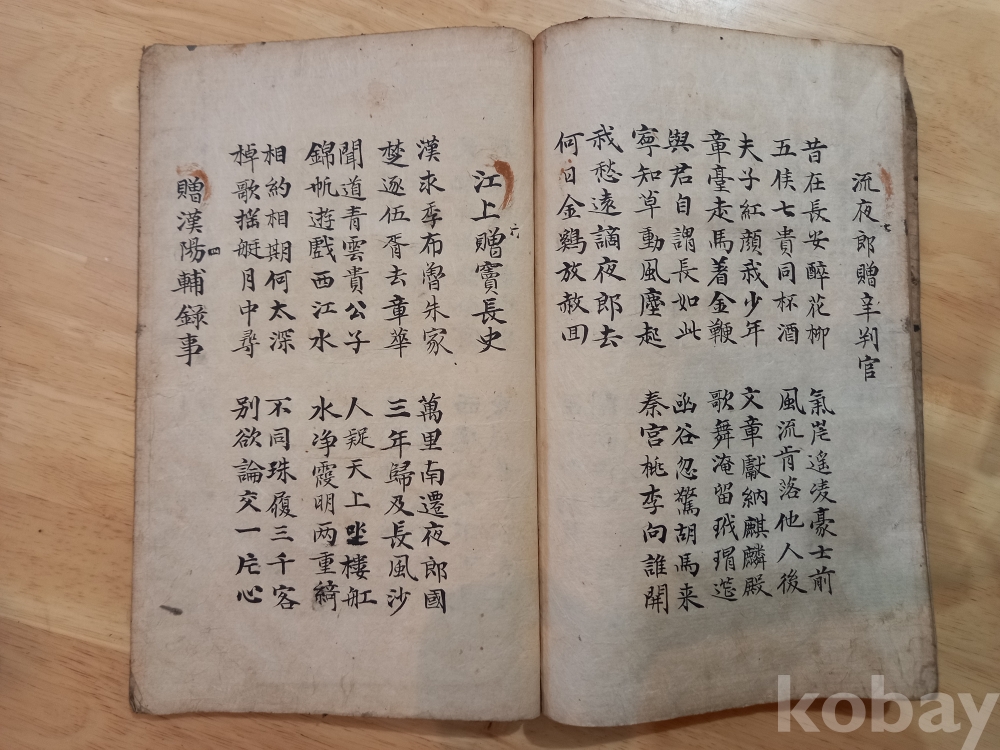 流夜郎贈辛判官
七
昔在長安醉花柳
五侯七貴同杯酒
氣岸遙凌豪士前
風流肯落他人後
夫子紅顔我少年
章臺走馬着金鞭
文章獻納麒麟殿
歌舞淹留玳瑁筵
與君自謂長如此
寧知草動風塵起
函谷忽驚胡馬来
秦宮桃李向誰開
我愁遠謫夜郎去
何日金鷄放赦回
江上贈竇長史
六
漢求季布魯朱家
楚逐伍胥去章華
萬里南遷夜郎國
三年歸及長風沙
聞道青雲貴公子
錦帆遊戲西江水
人疑天上坐樓舡
水净霞明兩重綺
相約相期何太深
棹歌搖艇月中尋
不同珠履三千客
别欲論交一片心
贈漢陽輔錄事
四
kobay